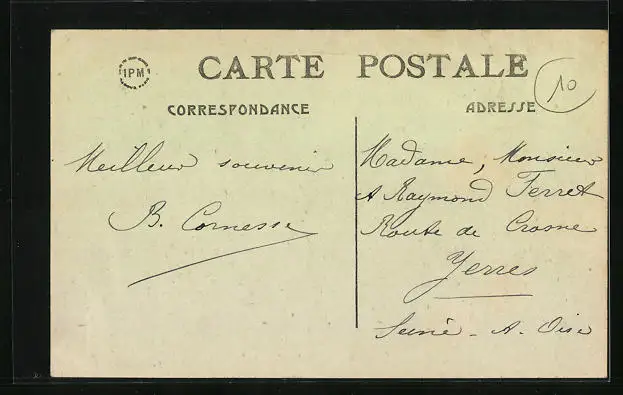 1PM
CARTE POSTALE
10
CORRESPONDANCE
ADRESSE
Meilleur souvenir
B. Cornesse
Madame, Monsieur
A Raymond Ferret
Route de Crosne
Yerres
Seine - A. Oise